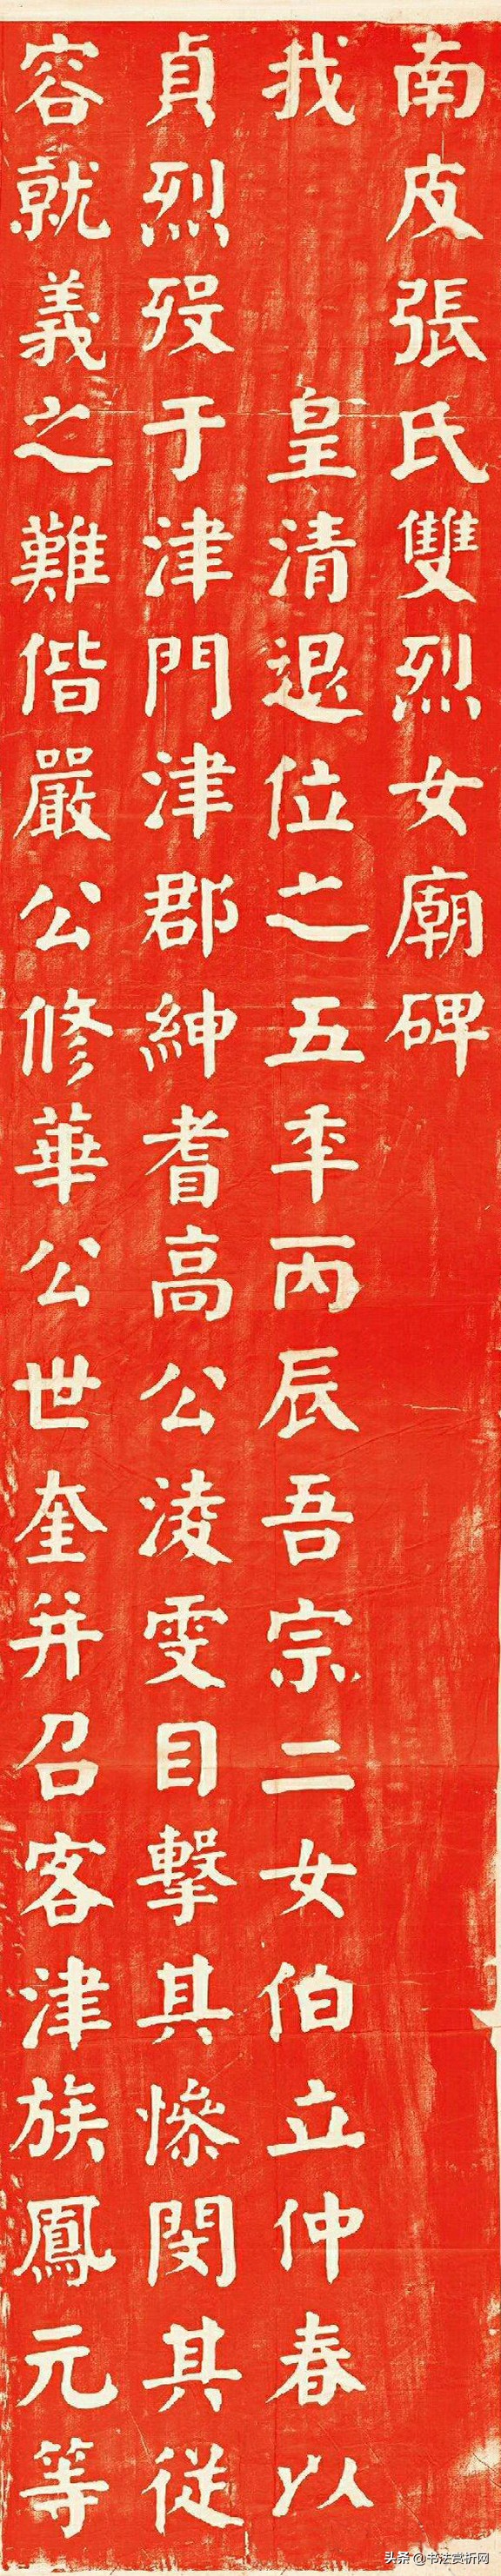 南皮張氏雙烈女廟碑
我 皇清退位之五年丙辰吾宗二女伯立仲春以
貞烈歿于津門津郡紳耆高公淩雯目擊其慘閔其従
容就義之難偕嚴公修華公世奎并召客津族鳳元等
头条 @书法赏析网